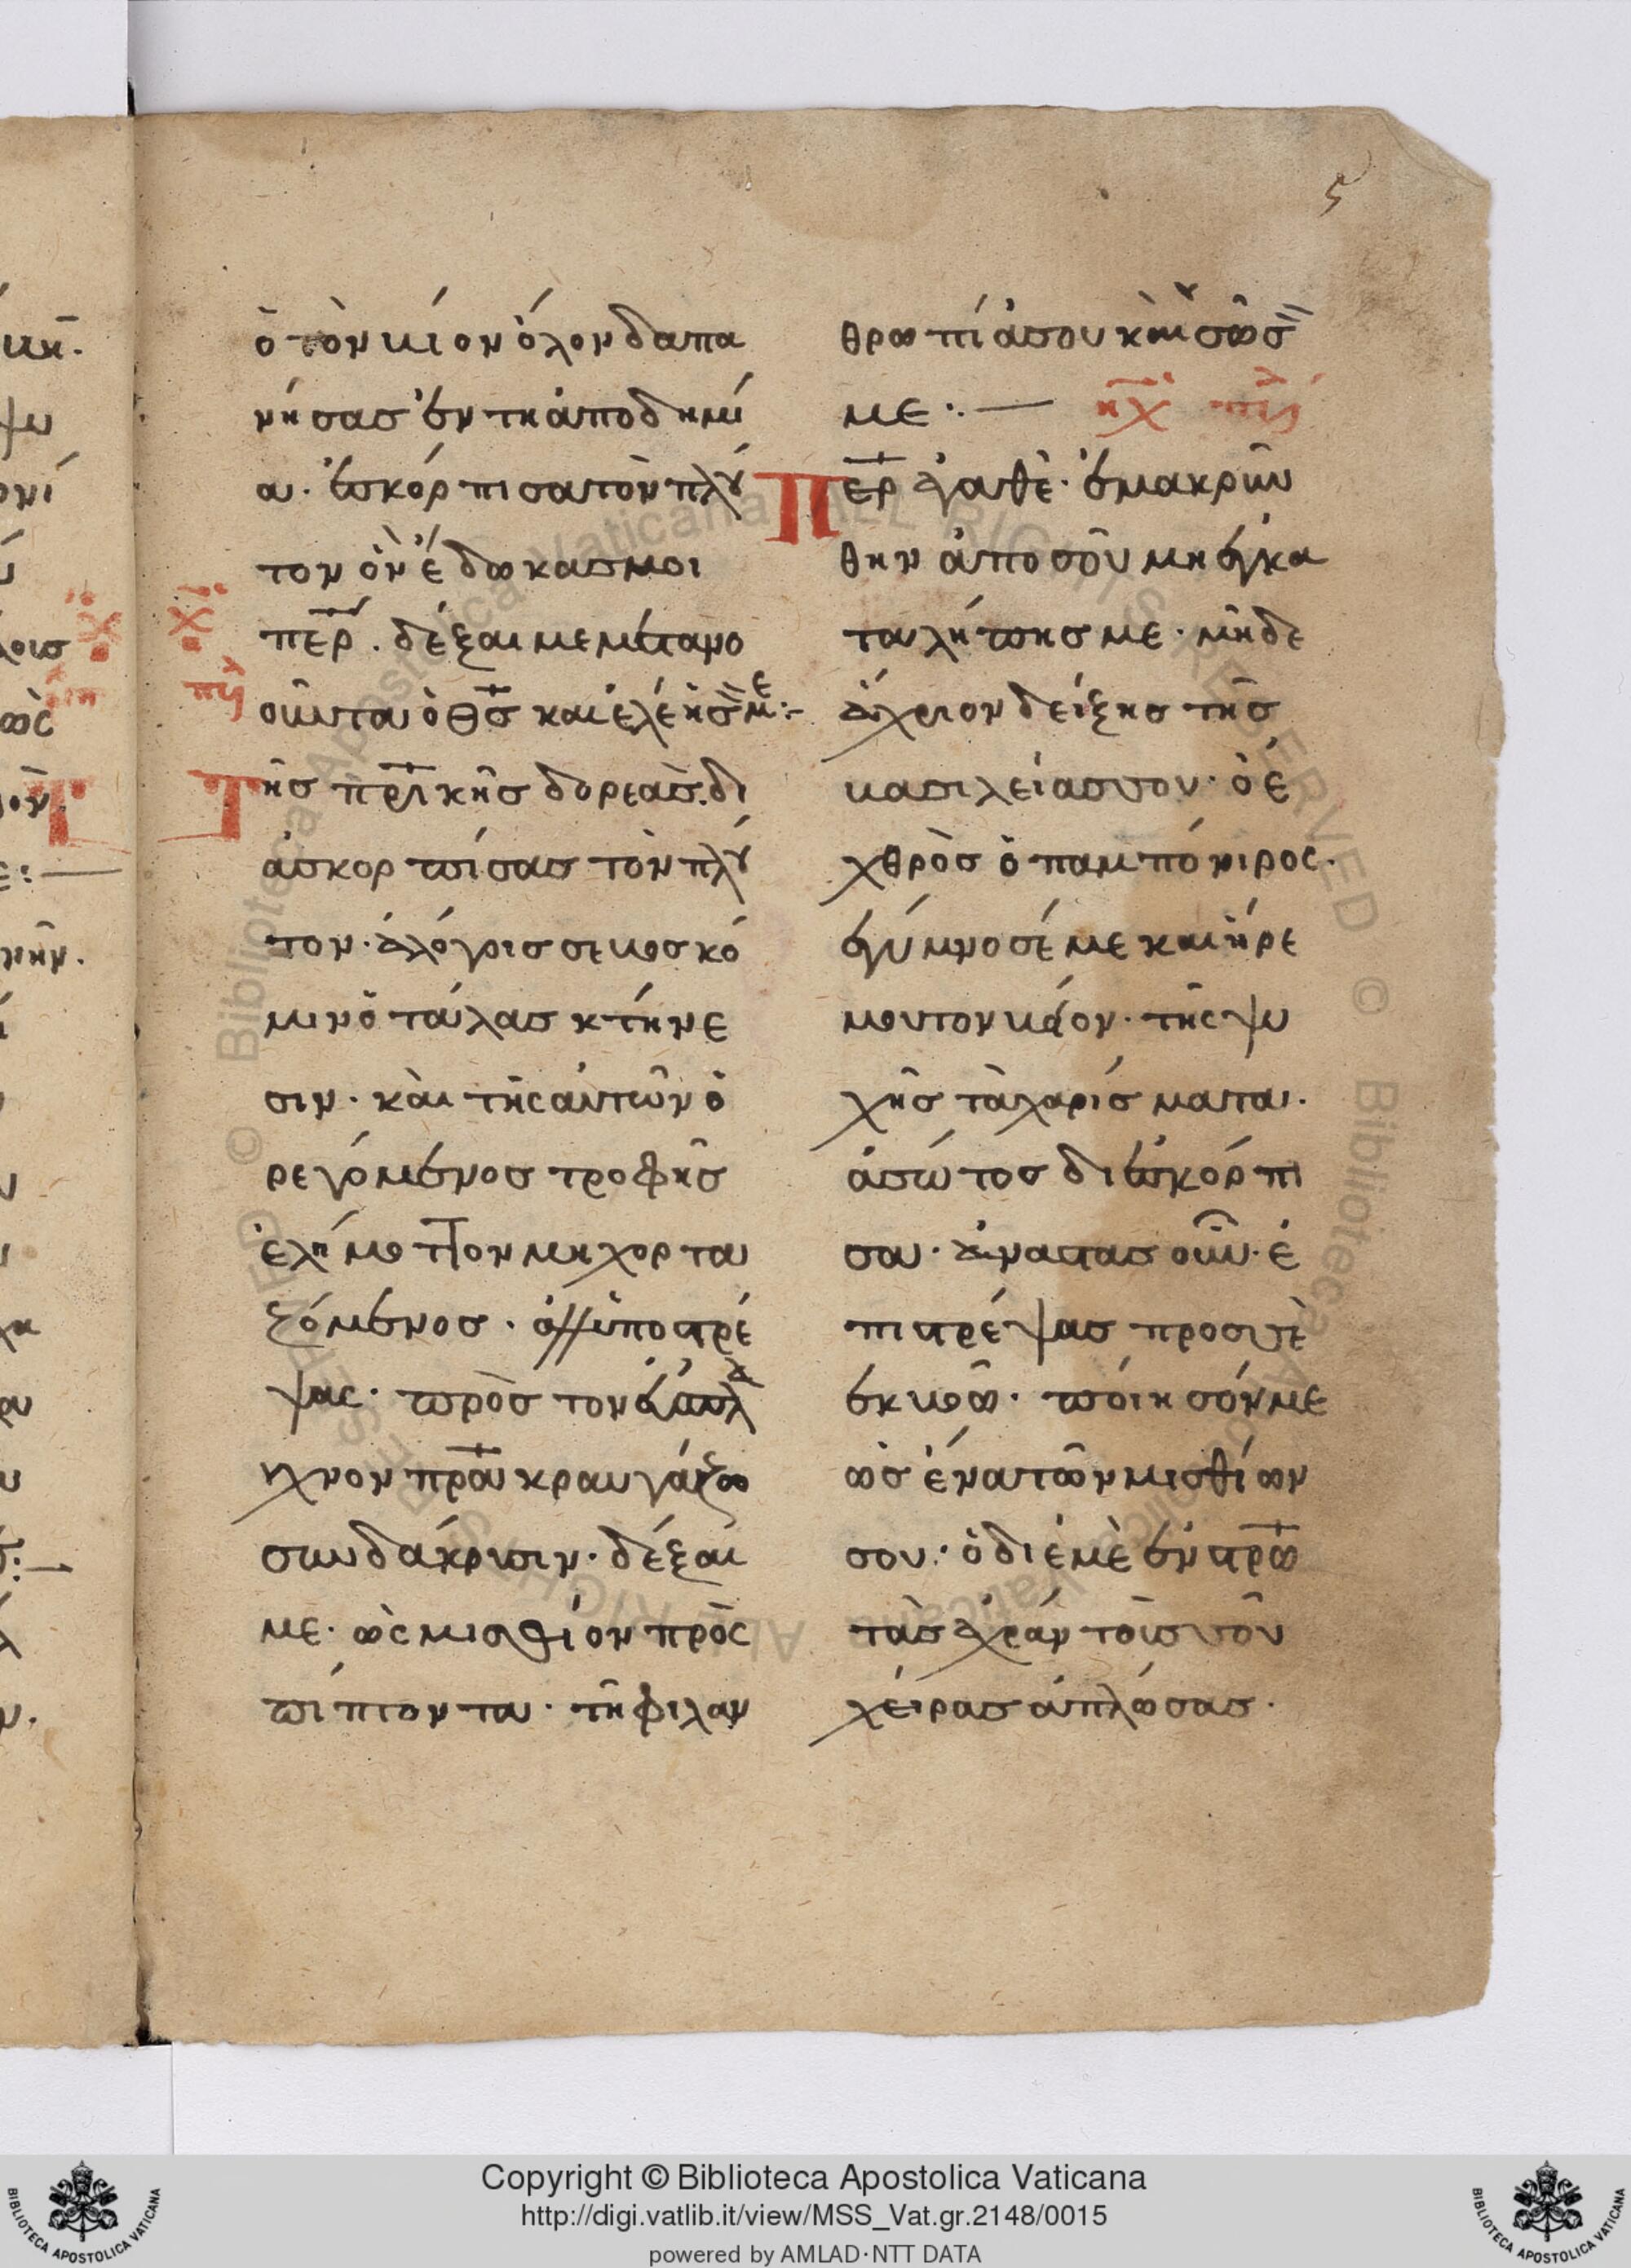 5
ὁ τὸν βίον ὅλον δαπα
νήσας ἐν τη ἀποδημί
α. ἐσκόρπισα τὸν πλού
τον ὃν ἔδωκασ μοι
περ. δέξαι με μετανο
οῦντα ὁ θς και ἐλέησ με:-
Τῆσ πρικῆσ δορεᾶς. δι
ἀσκορπίσας τὸν πλού
τον. ἀλόγοισ σεβοσκό
μιν ὁ τάλασ κτήνε
σιν. καὶ τῆς αυτῶν ὀ
ρεγόμενοσ τροφῆσ
ἐλημοττον μη χορτα
ζόμενοσ. ἀλλ ὑποστρέ
ψας. πρὸσ τον εὐσπλα
χνον πρα κραυγάζω
συν δάκρυσιν. δέξαι
με. ὡς μισθίον πρὸς
πίπτοντα. τῆ φιλαν
θρωπία σου καὶ σῶσ
με:. —
Περ ἀγαθὲ. ἐμακρύν
θην ἀπο σοῦ μη ἐγκα
ταλήπησ με. μῆδε
ἄχριον δείξησ τῆσ
βασιλείασ σου. ὁ ἐ
χθρὸσ ὁ παμπόνιροσ.
ἐγύμνοσέ με και ἦρε
μου τον βίον. τῆς ψυ
χῆσ τὰ χαρίσματα.
ἀσώτοσ διεσκόρπι
σα. ἀναστασ οὖν. ἐ
πιστρέψασ προσ σὲ
ἐκβοῶ. ποίησόν με
ὡσ ἕνα τῶν μισθίων
σου. ὁ δι ἐμὲ ἐν στρω
τὰσ ἀχράντουσ σοῦ
χεῖρασ ἀπλώσασ.
Copyright © Biblioteca Apostolica Vaticana
http://digi.vatlib.it/view/MSS_Vat.gr.2148/0015
powered by AMLAD·NTT DATA
BIBLIOTECA APOSTOLICA VATICANA
BIBLIOTECA APOSTOLICA VATICANA